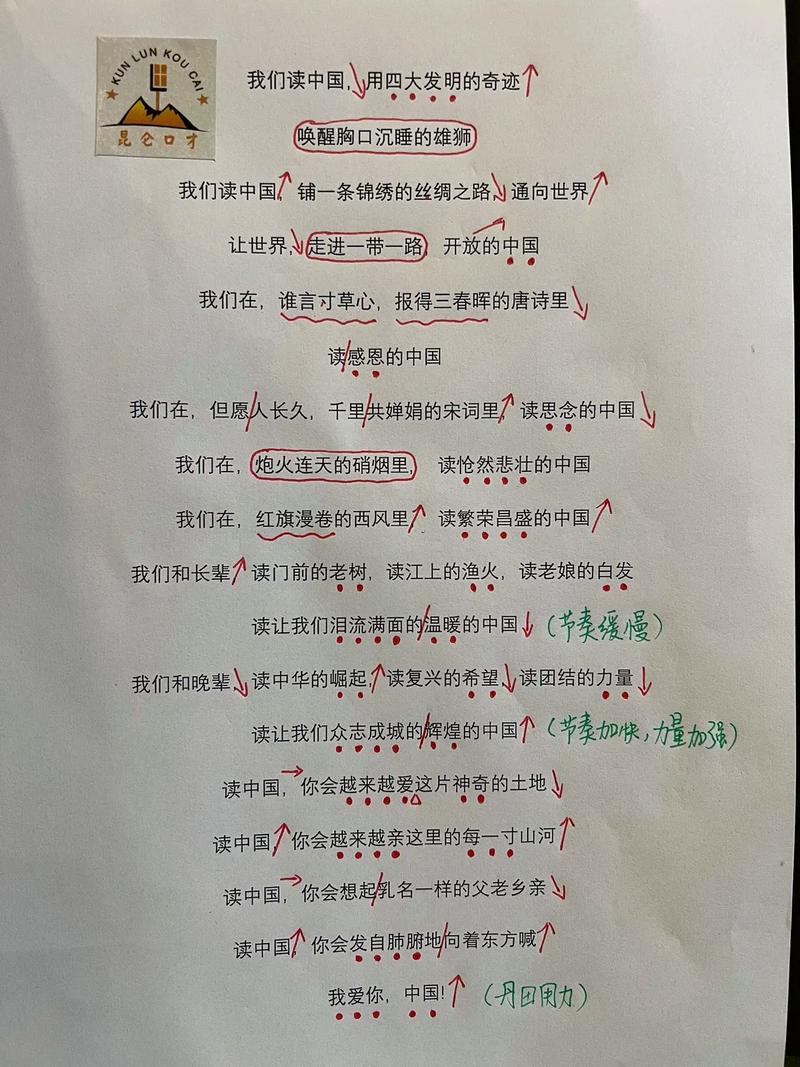 KUN LUN KOU CAI
昆仑口才
我们读中国，用四大发明的奇迹
唤醒胸口沉睡的雄狮
我们读中国，铺一条锦绣的丝绸之路，通向世界
让世界，走进一带一路，开放的中国
我们在，谁言寸草心，报得三春晖的唐诗里
读感恩的中国
我们在，但愿人长久，千里共婵娟的宋词里，读思念的中国
我们在，炮火连天的硝烟里，读怆然悲壮的中国
我们在，红旗漫卷的西风里，读繁荣昌盛的中国
我们和长辈，读门前的老树，读江上的渔火，读老娘的白发
读让我们泪流满面的温暖的中国（节奏缓慢）
我们和晚辈，读中华的崛起，读复兴的希望，读团结的力量
读让我们众志成城的辉煌的中国（节奏加快，力量加强）
读中国，你会越来越爱这片神奇的土地
读中国，你会越来越亲这里的每一寸山河
读中国，你会想起乳名一样的父老乡亲
读中国，你会发自肺腑地向着东方喊
我爱你，中国！（丹田用力）